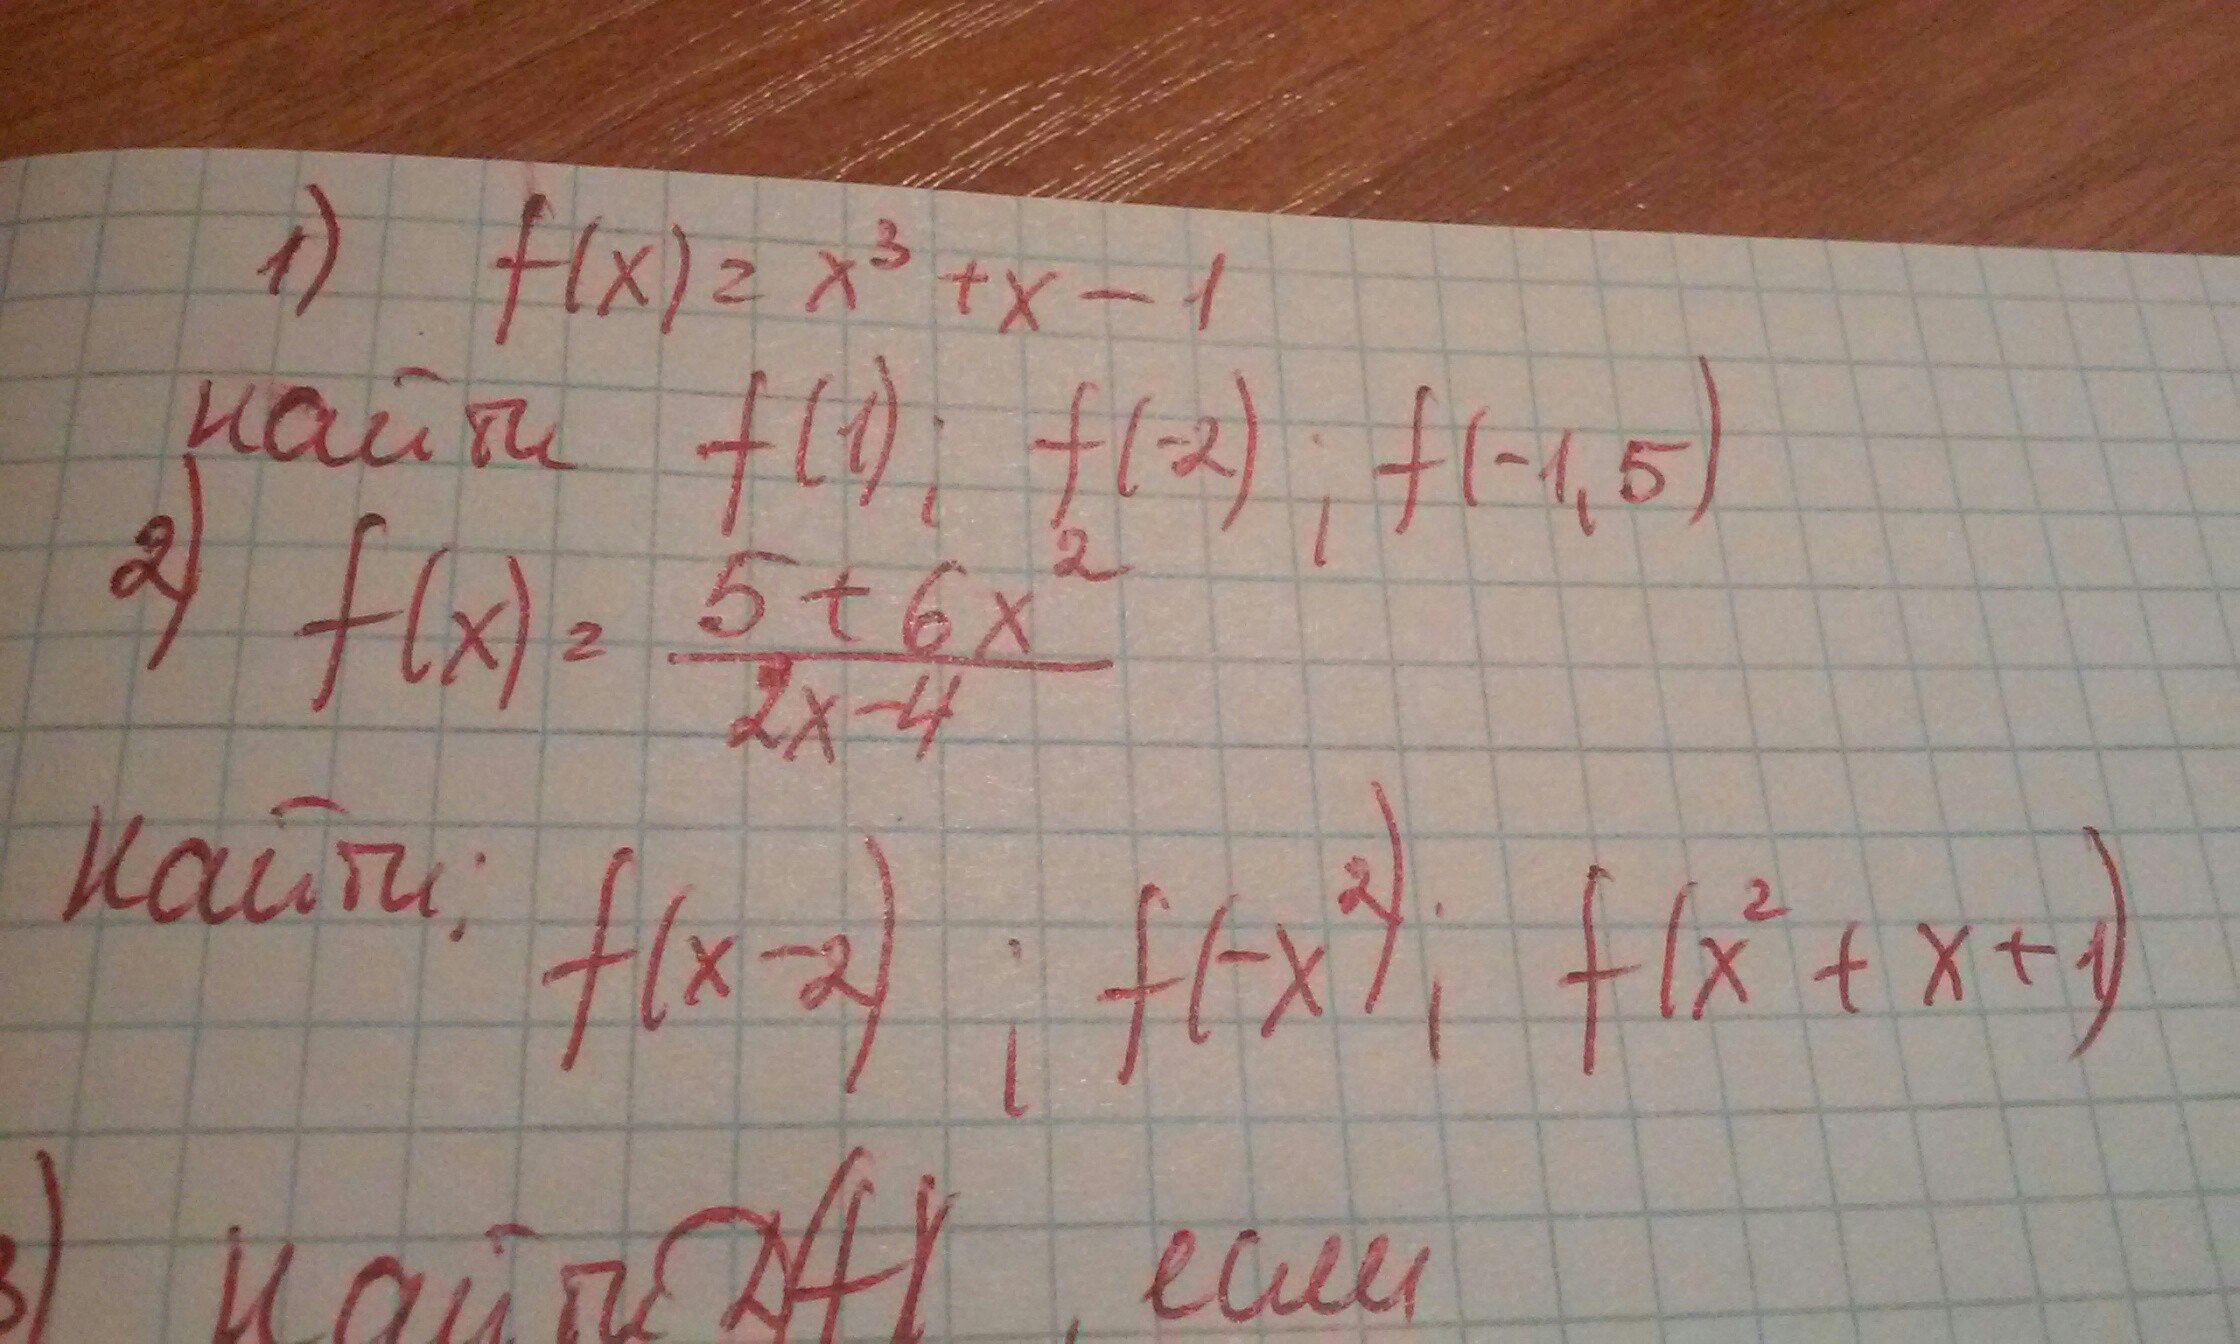 1) f(x) = x³ + x - 1
найти f(1); f(-2); f(-1,5)
2) f(x) = \frac{5+6x²}{2x-4}
найти; f(x-2); f(-x²); f(x²+x+1)
3) найти D(f), если